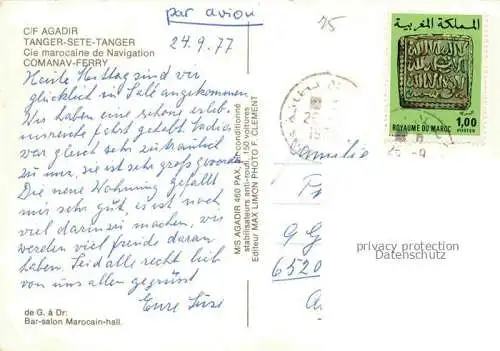 par avion
C/F AGADIR
TANGER-SETE-TANGER
Cie marocaine de Navigation
COMANAV-FERRY
24.9.77
Heute Mittag sind wir
glücklich in Salé angekommen.
Wir haben eine schöne erleb-
nisreiche Fahrt gehabt.
war gleich sehr zutraulich
zu mir, sie ist sehr groß geworden
Die neue Wohnung gefällt
mir sehr gut, es ist noch
viel darin zu machen, wir
werden viel Freude daran
haben. Seid alle recht lieb
von uns allen gegrüsst
Eure Susi
de G. à Dr:
Bar-salon Marocain-hall.
M/S AGADIR 460 PAX, air conditionné
stabilisateurs anti-roul. 150 voitures
Editeur MAX LIMON PHOTO F. CLEMENT
75
المملكة المغربية
ROYAUME DU MAROC
1,00
POSTES
Familie
6520
privacy protection
Datenschutz